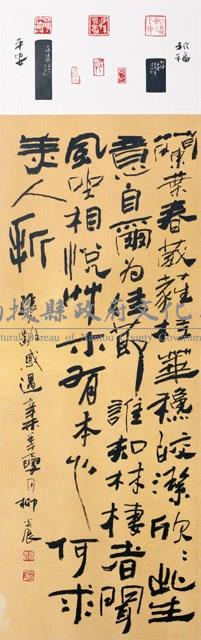 祈福
平安
蘭葉春葳蕤桂華穐皎潔欣〻此生
意自爾為佳節誰知林棲者聞
風坐相悅艸木有本心何求
美人折
張九齡感遇
投縣政府文化
tural Bureau of Nantou County Govern